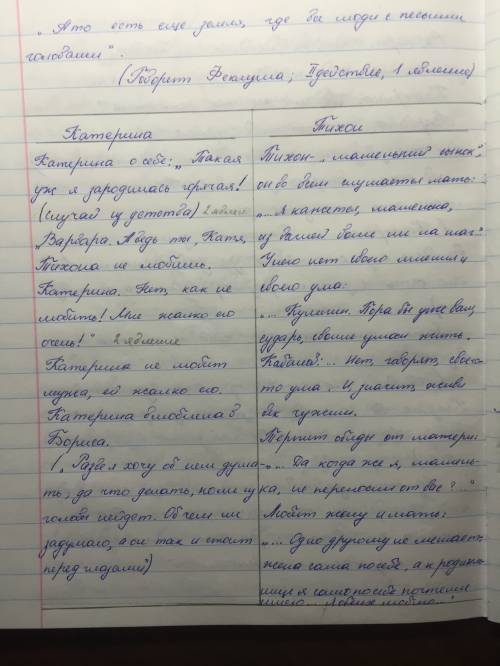 „А то есть еще земля, где все люди с песьими
головами".
(Говорит Феклуша; II действие, 1 явление)
Катерина
Катерина о себе: „Такая
уж я зародилась горячая!
(случай из детства) 2 явление
„Варвара. А ведь ты, Катя,
Тихона не любишь.
Катерина. Нет, как не
любить! Мне жалко его
очень!" 2 явление
Катерина не любит
мужа, ей жалко его.
Катерина влюблена в
Бориса.
(„Разве я хочу об нем дума-
ть; да что делать, коли из
головы нейдет. Об чем ни
задумаю, а он так и стоит
перед глазами")
Тихон
Тихон - „маменький сынок",
он во всем слушается мать:
„...Я, кажется, маменька,
из вашей воли ни на шаг"
У него нет своего мнения и
своего ума:
„... Кулигин. Пора бы уже вам,
сударь, своим умом жить.
Кабанов: ... Нет, говорят, своего-
то ума. И, значит, живи
век чужим.
Терпит обиды от матери
„... Да когда же я, мамень-
ка, не переносил от вас?.."
Любит жену и мать:
„... Одно другому не мешает:
жена сама по себе, а к родитель-
нице я само по себе почтение
имею...